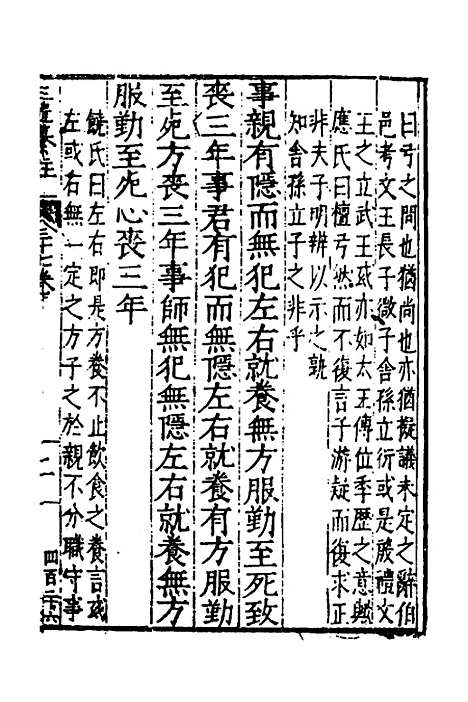 曰弓之問也猶尚也亦猶擬議未定之辭伯
邑考文王長子微子舍孫立衍或是殷禮文
王之立武王或亦如太王傳位季歴之意與
應氏曰檀弓然而不復言子游疑而復求正
非夫子明辨以示之孰
知舍孫立子之非乎
事親有隱而無犯左右就養無方服勤至死致
喪三年事君有犯而無隱左右就養有方服勤
至死方喪三年事師無犯無隱左右就養無方
服勤至死心喪三年
饒氏曰左右即是方養不止飲食之養言或
左或右無一定之方子之於親不分職守事
三禮纂註
二
四百二十六